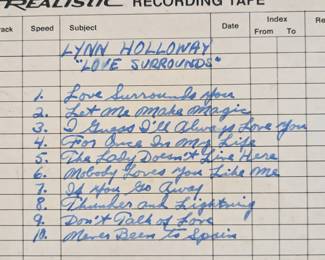 REALISTIC RECORDING TAPE
Track Speed Subject Date Index Re
From To
LYNN HOLLOWAY
"LOVE SURROUNDS"
1. Love Surrounds You
2. Let Me Make Magic
3. I Guess I'll Always Love You
4. For Once In My Life
5. The Lady Doesn't Live Here
6. Nobody Loves You Like Me
7. If You Go Away
8. Thunder and Lightning
9. Don't Talk of Love
10. Never Been to Spain